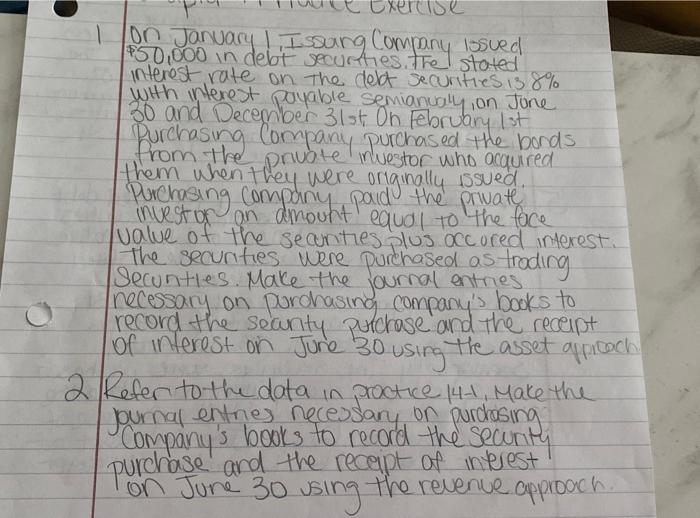 Practice Exercise
1 On January 1, Issuing Company issued
$50,000 in debt securities. The stated
interest rate on the debt securities is 8%
with interest payable semianually, on June
30 and December 31st. On February 1st
Purchasing Company purchased the bonds
from the private investor who acquired
them when they were originally issued.
Purchasing Company paid the private
investor an amount equal to the face
value of the securities plus accored interest.
The securities were purchased as trading
Securities. Make the journal entries
necessary on purchasing company's books to
record the security purchase and the receipt
of interest on June 30 using the asset approach
2 Refer to the data in practice 14-1, Make the
journal entries necessary on purchasing
Company's books to record the security
purchase and the receipt of interest
on June 30 using the revenue approach.